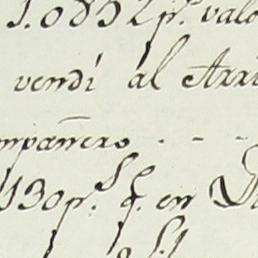 1.0852 p.s valo
vendí al Arri
mpañero . - -
130 p.s q. en